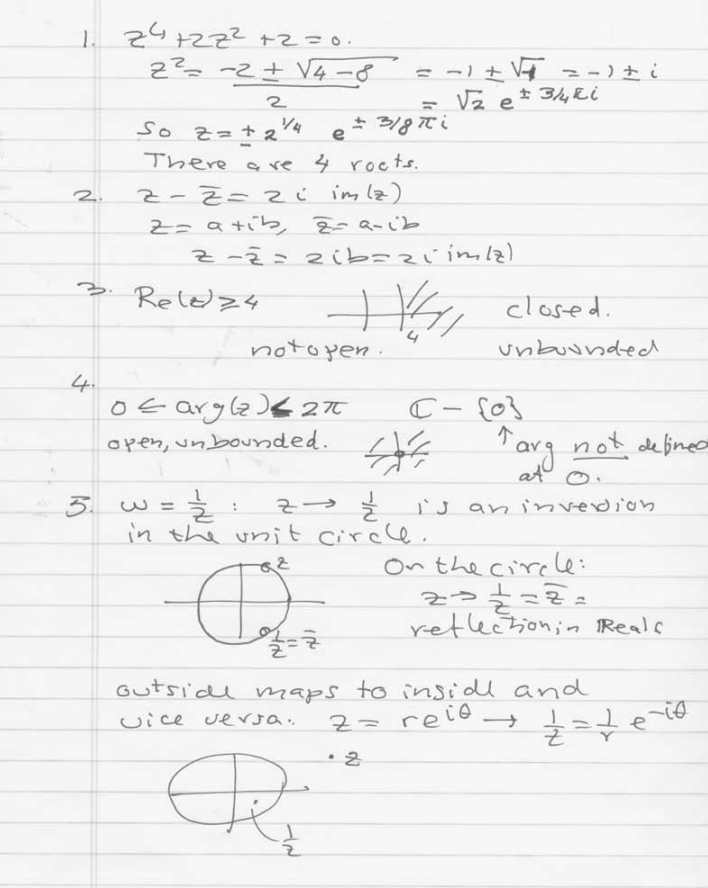 1. z⁴ + 2z² + 2 = 0.
z² = (-2 ± √(4-8))/2 = -1 ± √-1 = -1 ± i
= √2 e^(± 3/4 πi)
So z = ± 2^(1/4) e^(± 3/8 πi)
There are 4 roots.
2. z - z̄ = 2i im(z)
z = a + ib, z̄ = a - ib
z - z̄ = 2ib = 2i im(z)
3. Re(z) ≥ 4
4
closed.
not open. unbounded
4.
0 ≤ arg(z) ≤ 2π ℂ - {0}
open, unbounded. ↑ arg not defined
at 0.
5. ω = 1/z : z → 1/z is an inversion
in the unit circle.
z
On the circle:
z → 1/z = z̄ =
1/z = z̄
reflection in Reals
outside maps to inside and
vice versa. z = re^(iθ) → 1/z = 1/r e^(-iθ)
· z
1/z